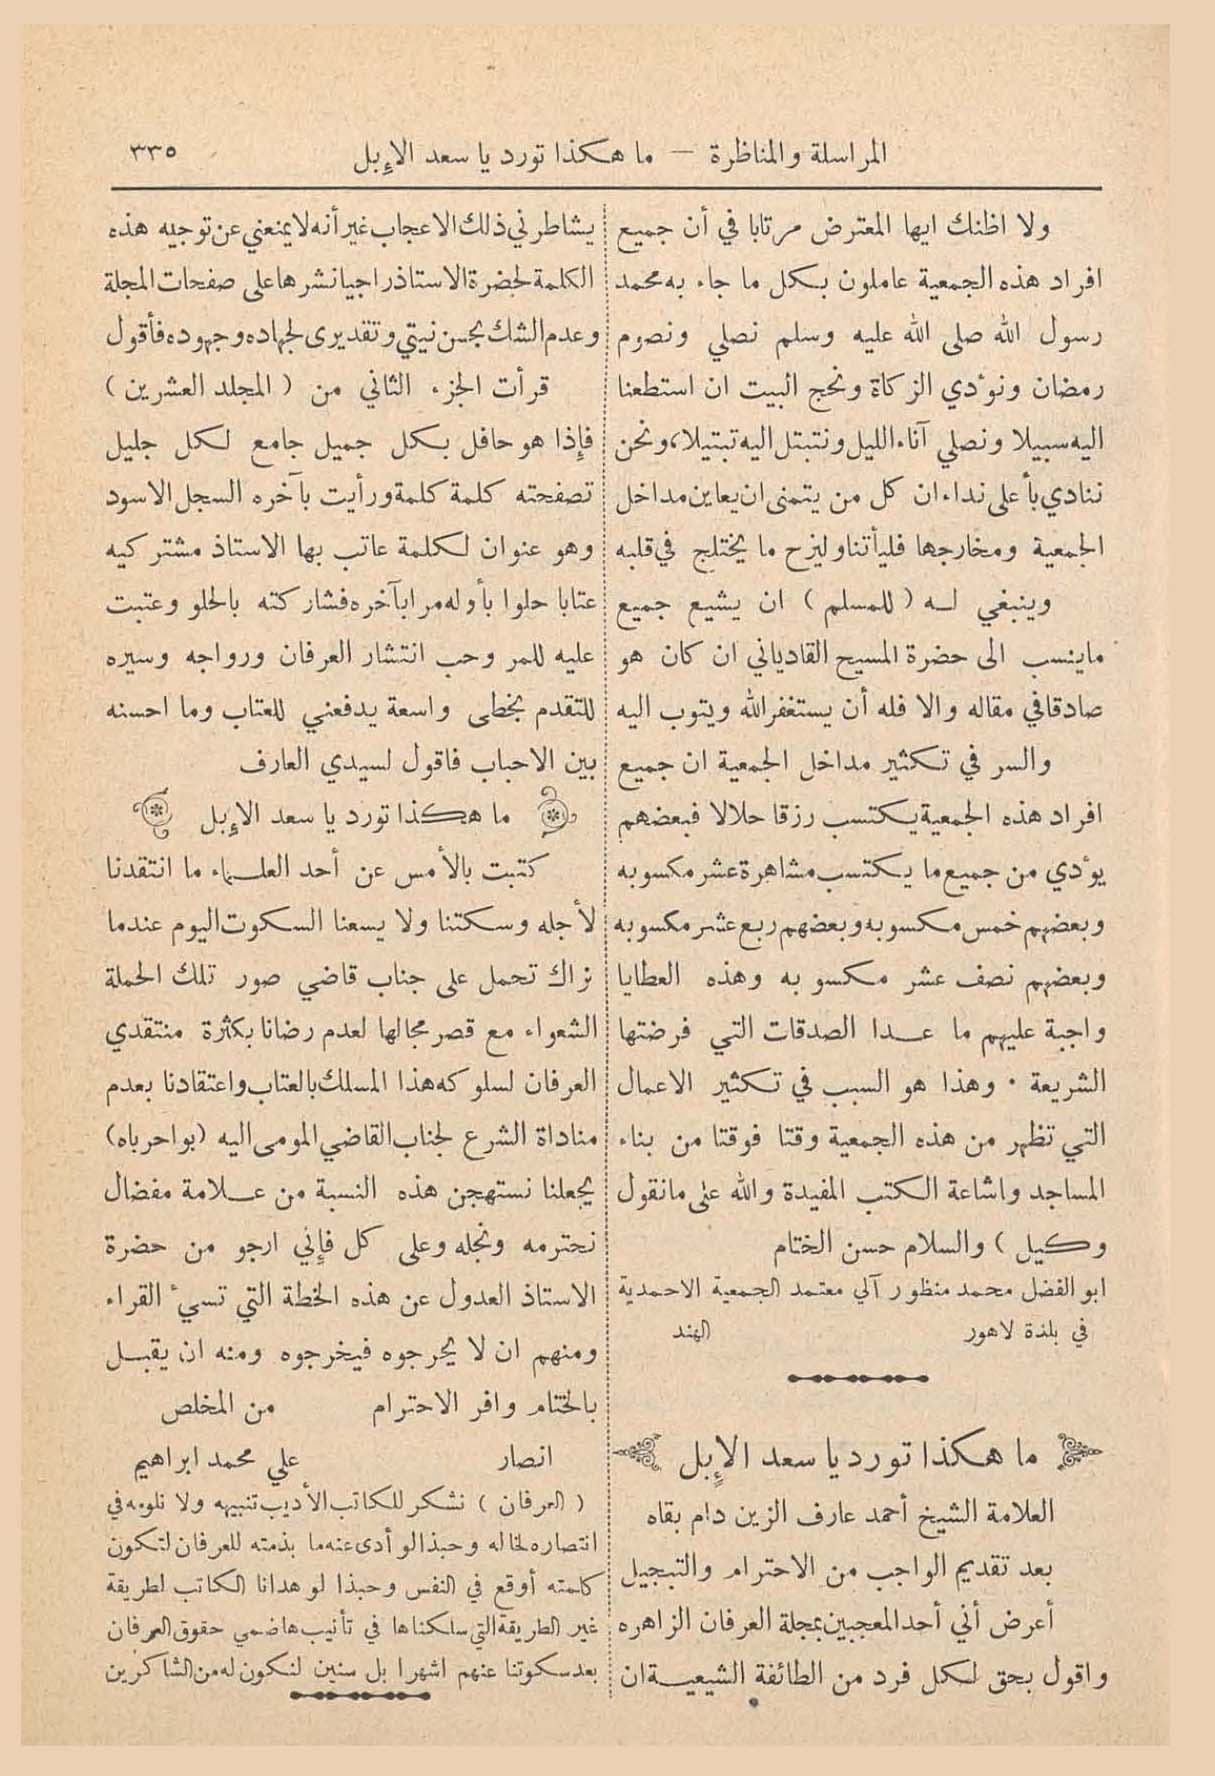 المراسلة والمناظرة — ما هكذا تورد يا سعد الإبل
٣٣٥
ولا اظنك ايها المعترض مرتابا في أن جميع
افراد هذه الجمعية عاملون بكل ما جاء به محمد
رسول الله صلى الله عليه وسلم نصلي ونصوم
رمضان ونؤدي الزكاة ونحج البيت ان استطعنا
اليه سبيلا ونصلي آناء الليل ونتبتل اليه تبتيلا، ونحن
ننادي بأعلى نداء ان كل من يتمنى ان يعاين مداخل
الجمعية ومخارجها فليأتنا وليزح ما يختلج في قلبه
وينبغي له ( للمسلم ) ان يشيع جميع
ماينسب الى حضرة المسيح القادياني ان كان هو
صادقا في مقاله والا فله أن يستغفر الله ويتوب اليه
والسر في تكثير مداخل الجمعية ان جميع
افراد هذه الجمعية يكتسب رزقا حلالا فبعضهم
يؤدي من جميع ما يكتسب مشاهرة عشر مكسوبه
وبعضهم خمس مكسوبه وبعضهم ربع عشر مكسوبه
وبعضهم نصف عشر مكسوبه وهذه العطايا
واجبة عليهم ما عدا الصدقات التي فرضتها
الشريعة · وهذا هو السبب في تكثير الاعمال
التي تظهر من هذه الجمعية وقتا فوقتا من بناء
المساجد واشاعة الكتب المفيدة والله على مانقول
وكيل ) والسلام حسن الختام
ابو الفضل محمد منظور آلي معتمد الجمعية الاحمدية
في بلدة لاهور الهند
ما هكذا تورد يا سعد الإبل
العلامة الشيخ أحمد عارف الزين دام بقاه
بعد تقديم الواجب من الاحترام والتبجيل
أعرض أني أحد المعجبين بمجلة العرفان الزاهره
واقول بحق لكل فرد من الطائفة الشيعية ان
يشاطرني ذلك الاعجاب غير أنه لا يمنعني عن توجيه هذه
الكلمة لحضرة الاستاذ راجيا نشرها على صفحات المجلة
وعدم الشك بحسن نيتي وتقديرى لجهاده وجهوده فأقول
قرأت الجزء الثاني من ( المجلد العشرين )
فإذا هو حافل بكل جميل جامع لكل جليل
تصفحته كلمة كلمة ورأيت بآخره السجل الاسود
وهو عنوان لكلمة عاتب بها الاستاذ مشتركيه
عتابا حلوا بأوله مرا بآخره فشاركته بالحلو وعتبت
عليه للمر وحب انتشار العرفان ورواجه وسيره
للتقدم بخطى واسعة يدفعني للعتاب وما احسنه
بين الاحباب فاقول لسيدي العارف
ما هكذا تورد يا سعد الإبل
كتبت بالأمس عن أحد العلماء ما انتقدنا
لأجله وسكتنا ولا يسعنا السكوت اليوم عندما
نراك تحمل على جناب قاضي صور تلك الحملة
الشعواء مع قصر مجالها لعدم رضانا بكثرة منتقدي
العرفان لسلوكه هذا المسلك بالعتاب واعتقادنا بعدم
مناداة الشرع لجناب القاضي المومى اليه (بواحرباه)
يجعلنا نستهجن هذه النسبة من علامة مفضال
نحترمه ونجله وعلى كل فإني ارجو من حضرة
الاستاذ العدول عن هذه الخطة التي تسيء القراء
ومنهم ان لا يحرجوه فيخرجوه ومنه ان يقبل
بالختام وافر الاحترام من المخلص
انصار علي محمد ابراهيم
( العرفان ) نشكر للكاتب الأديب تنبيهه ولا نلومه في
انتصاره لخاله وحبذا لو أدى عنه ما بذمته للعرفان لتكون
كلمته أوقع في النفس وحبذا لو هدانا الكاتب لطريقة
غير الطريقة التي سلكناها في تأنيب هاضمي حقوق العرفان
بعد سكوتنا عنهم اشهرا بل سنين لنكون له من الشاكرين